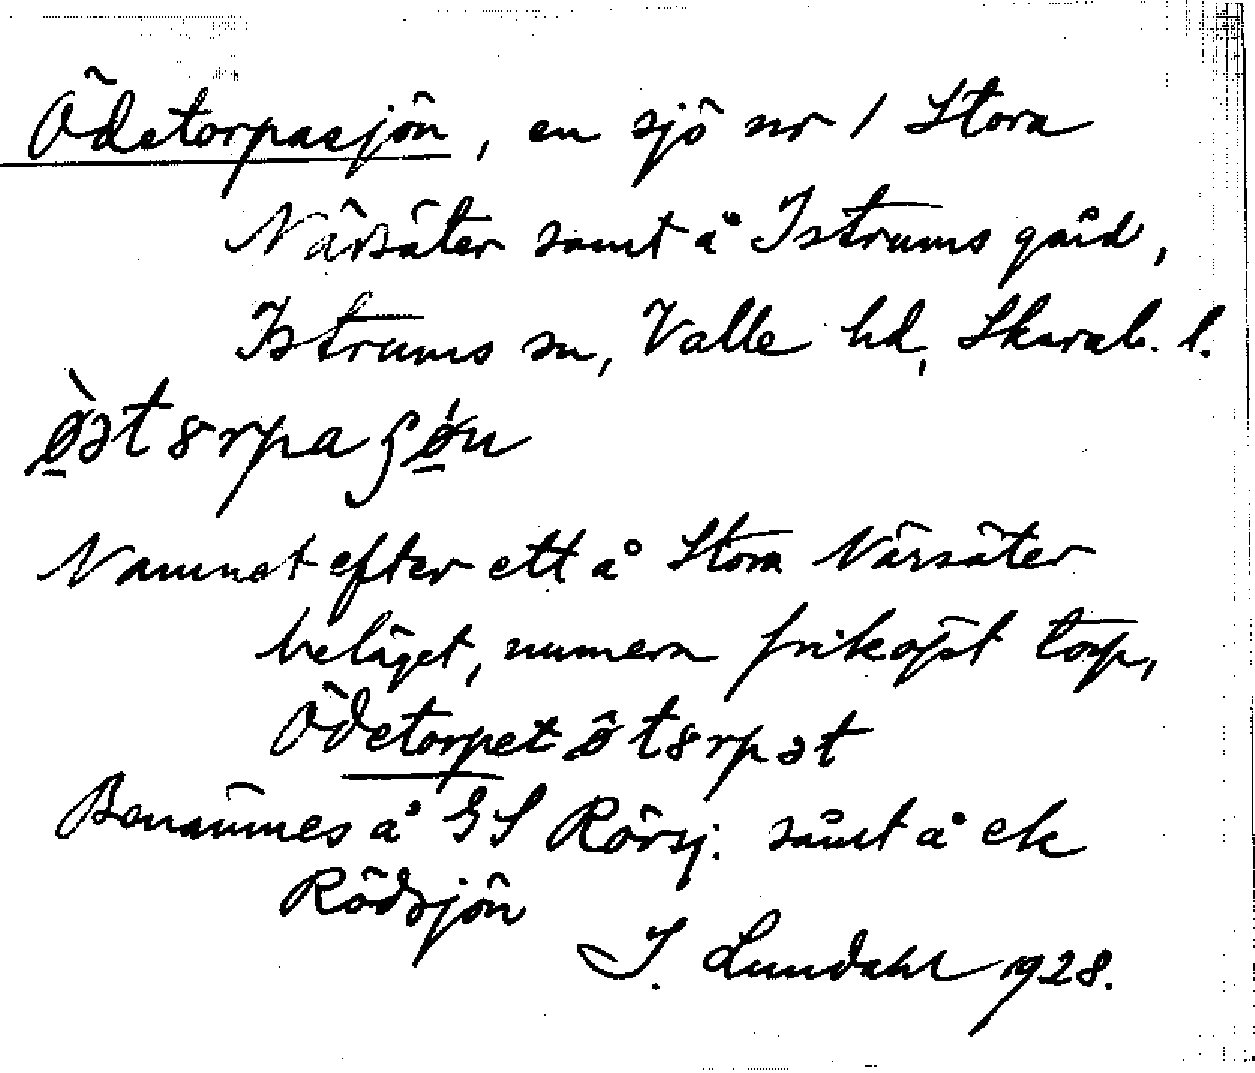 Ödetorpasjön, en sjö nr 1 Stora
Närsäter samt å Istrums gård,
Istrums sn, Valle hd, Skarab. l.
ø̱̀ət8rpaʃǿ̱n
Namnet efter ett å Stora Närsäter
beläget, numera friköpt torp,
Ödetorpet ø̂t8rpət
Benämnes å GS Rörsj. samt å ek
Rödsjön
I. Lundahl 1928.